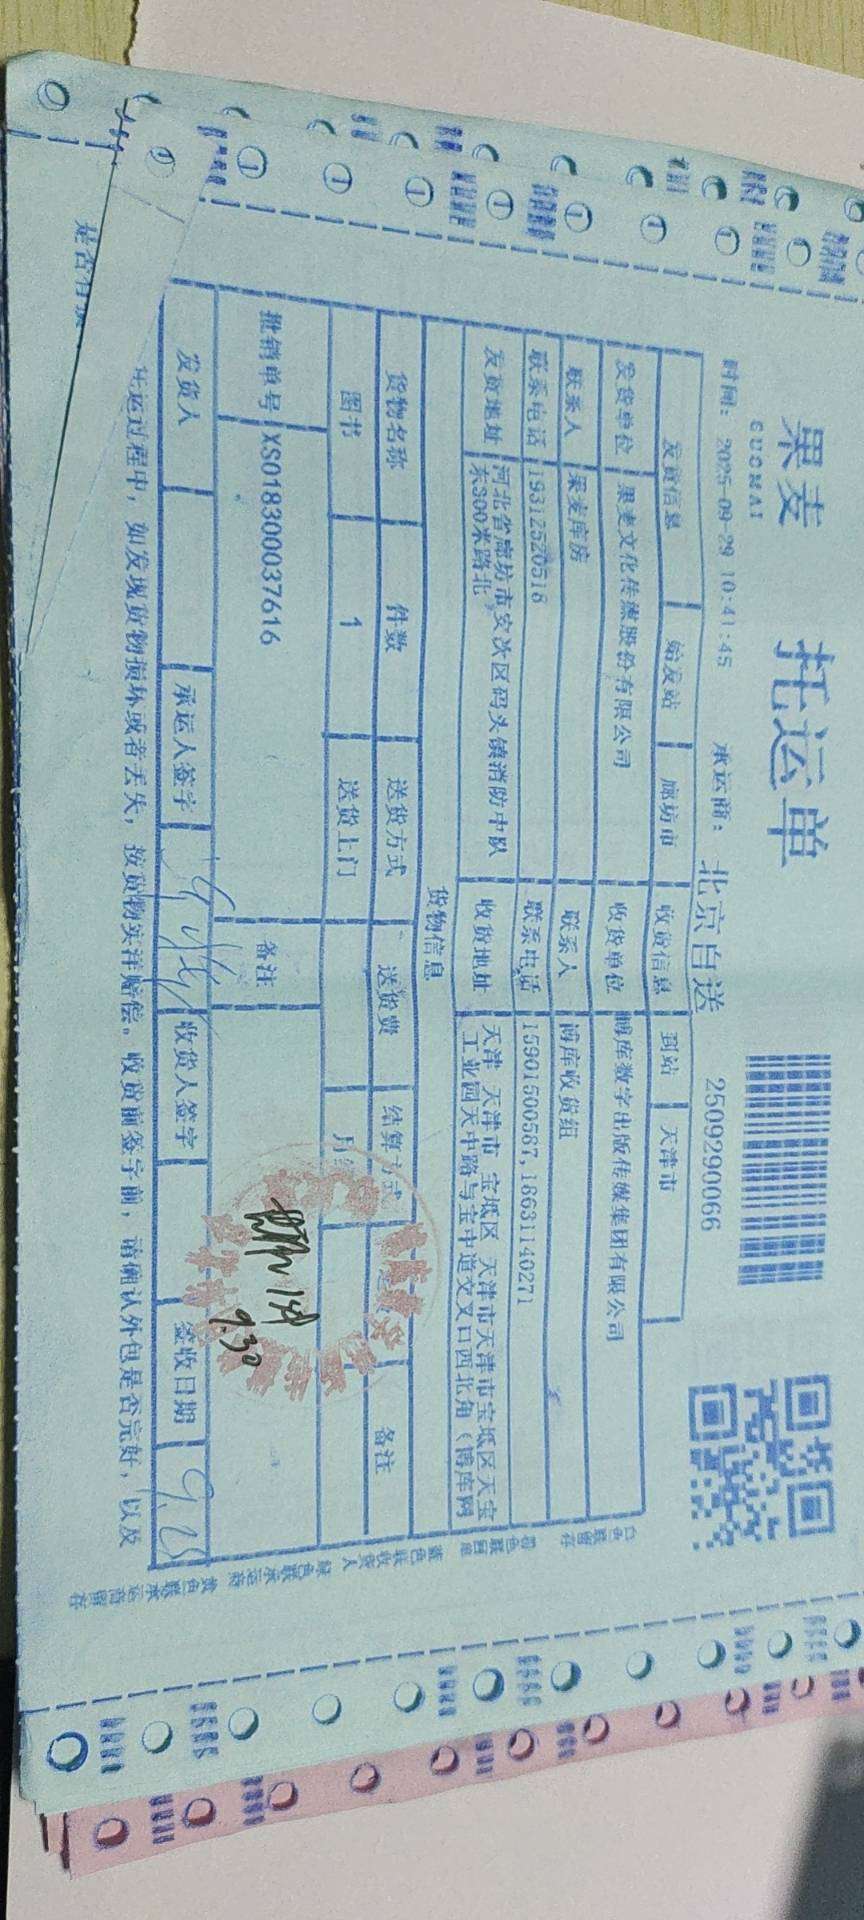 果麦
GUOMAI
托运单
时间: 2025-09-29 10:41:45 承运商: 北京自送 2509290066
发货信息 始发站 廊坊市 收货信息 到站 天津市
发货单位 果麦文化传媒股份有限公司 收货单位 博库数字出版传媒集团有限公司
联系人 果麦库房 联系人 博库收货组
联系电话 19312520516 联系电话 15901500587,18631140271
发货地址 河北省廊坊市安次区码头镇消防中队东300米路北 收货地址 天津 天津市 宝坻区 天津市天津市宝坻区天宝工业园天中路与宝中道交叉口西北角（博库网
货物信息
货物名称 件数 送货方式 送货费 结算方式 备注
图书 1 送货上门 月
批销单号 XS018300037616 备注
9.30
发货人 承运人签字 收货人签字 签收日期
运过程中，如发现货物损坏或者丢失，按货物实洋赔偿。收货前签字前，请确认外包是否完好，以及
是否有